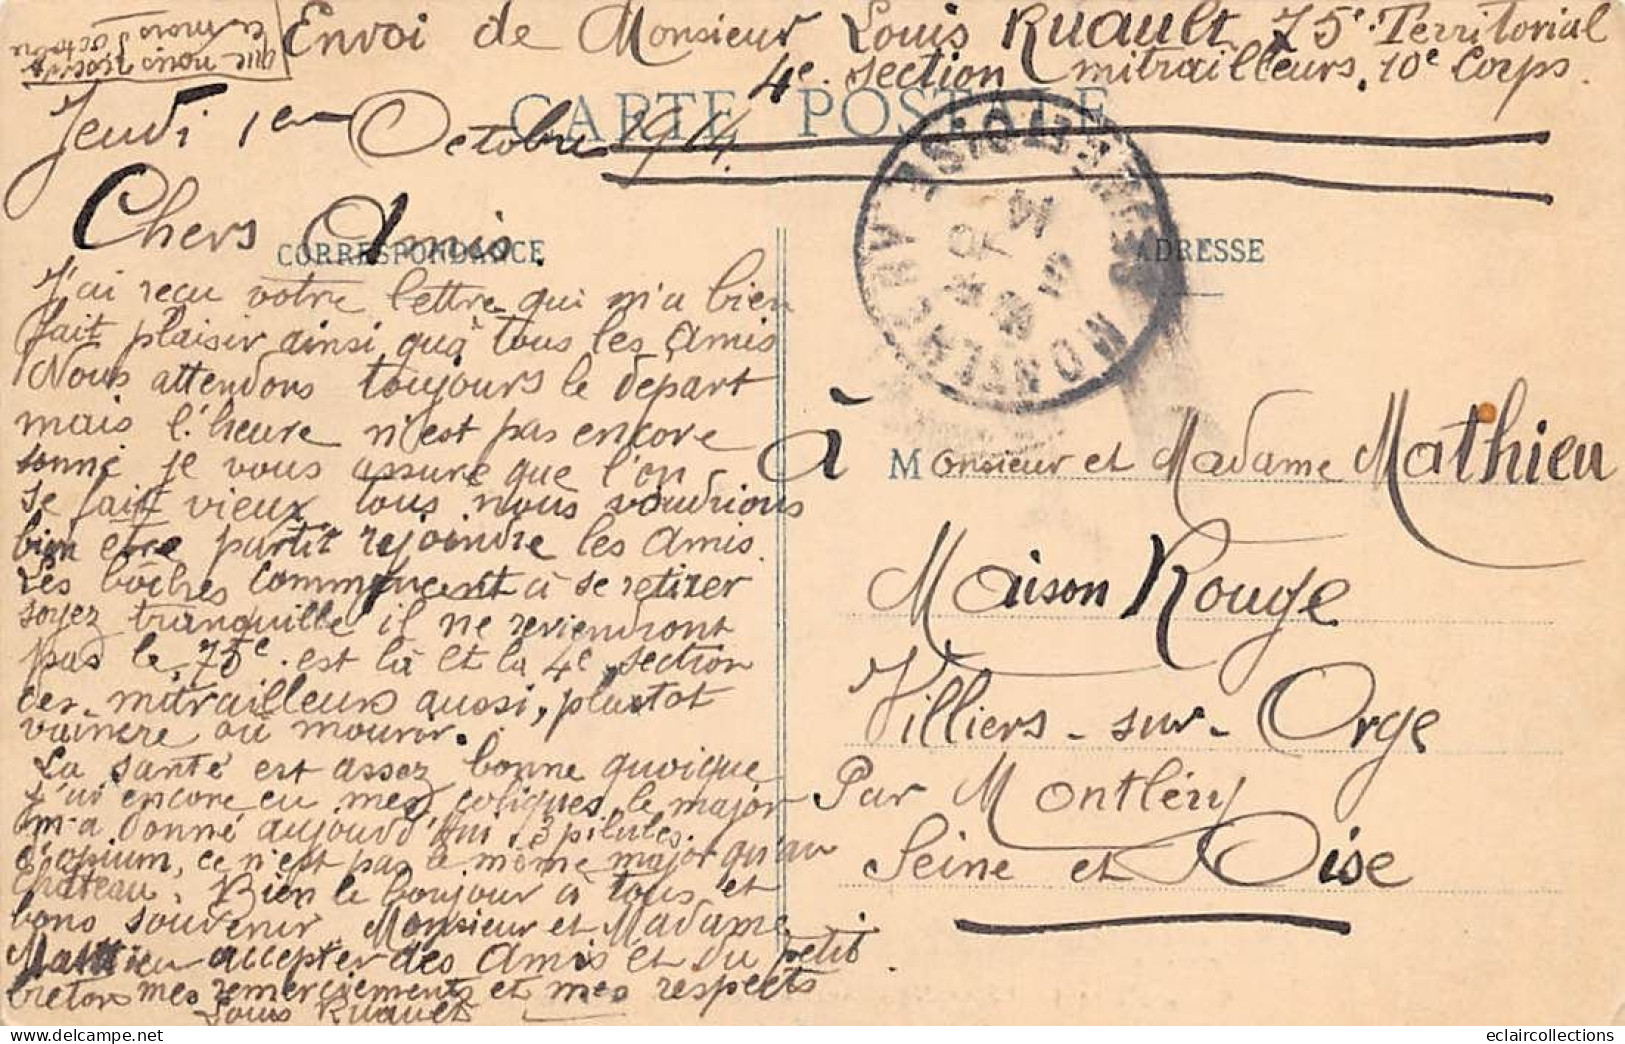 Envoi de Monsieur Louis Ruault 75e Territorial
4e section mitrailleurs. 10e Corps.
CARTE POSTALE
Jeudi 1er Octobre 1914
Chers Amis.
CORRESPONDANCE
J'ai reçu votre lettre qui m'a bien
fait plaisir ainsi qu'à tous les Amis
Nous attendons toujours le départ
mais l'heure n'est pas encore
sonné je vous assure que l'on
se fait vieux tous nous voudrions
bien etre partit rejoindre les Amis.
Les bôches commencent à se retirer
soyez tranquille il ne reviendront
pas le 75e. est là et la 4e section
des mitrailleurs aussi, plustot
vaincre ou mourir.
La santé est assez bonne quoique
j'ai encore eu mes coliques le major
m'a donné aujourd'hui 3 pilules
d'opium, ce n'est pas le même major qu'au
Château. Bien le bonjour à tous et
bons souvenir Monsieur et Madame
Matthieu accepter des Amis et du petit
breton mes remerciements et mes respects
Louis Ruault
que nous
le mois d'octobre
MONTLHERY
SEINE-ET-OISE
ADRESSE
à Monsieur et Madame Mathieu
Maison Rouge
Villiers-sur-Orge
Par Montléry
Seine et Oise
eclaircollections